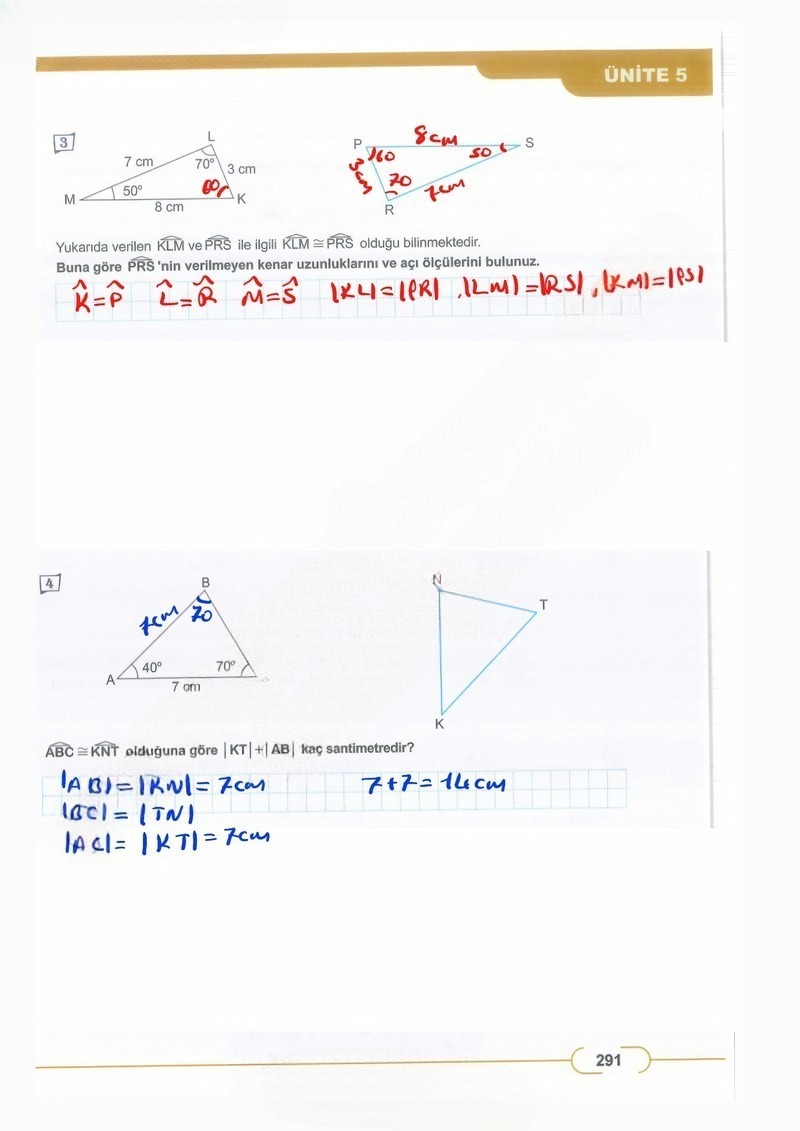 ÜNİTE 5
3
L
7 cm
70°
3 cm
M
50°
60
K
8 cm
P
8cm
S
60
50
3cm
70
7cm
R
Yukarıda verilen KLM ve PRS ile ilgili KLM ≅ PRS olduğu bilinmektedir.
Buna göre PRS 'nin verilmeyen kenar uzunluklarını ve açı ölçülerini bulunuz.
K̂=P̂ L̂=R̂ M̂=Ŝ |KL|=|PR| , |LM|=|RS| , |KM|=|PS|
4
B
7cm
70
A
40°
70°
7 cm
N
T
K
ABC ≅ KNT olduğuna göre |KT|+|AB| kaç santimetredir?
|AB|=|KN|= 7cm 7+7=14cm
|BC|= |TN|
|AC|= |KT|=7cm
291